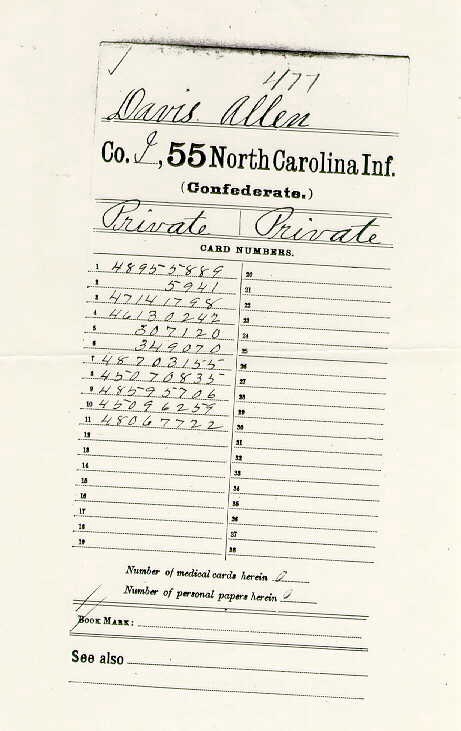 477
Davis Allen
Co. I, 55 North Carolina Inf.
(Confederate.)
Private | Private
CARD NUMBERS.
1 48955889 20
2 5941 21
3 47141798 22
4 46130242 23
5 307120 24
6 349070 25
7 48703155 26
8 45070835 27
9 48595706 28
10 45096259 29
11 48067722 30
12 31
13 32
14 33
15 34
16 35
17 36
18 37
19 38
Number of medical cards herein 0
Number of personal papers herein 0
BOOK MARK:
See also